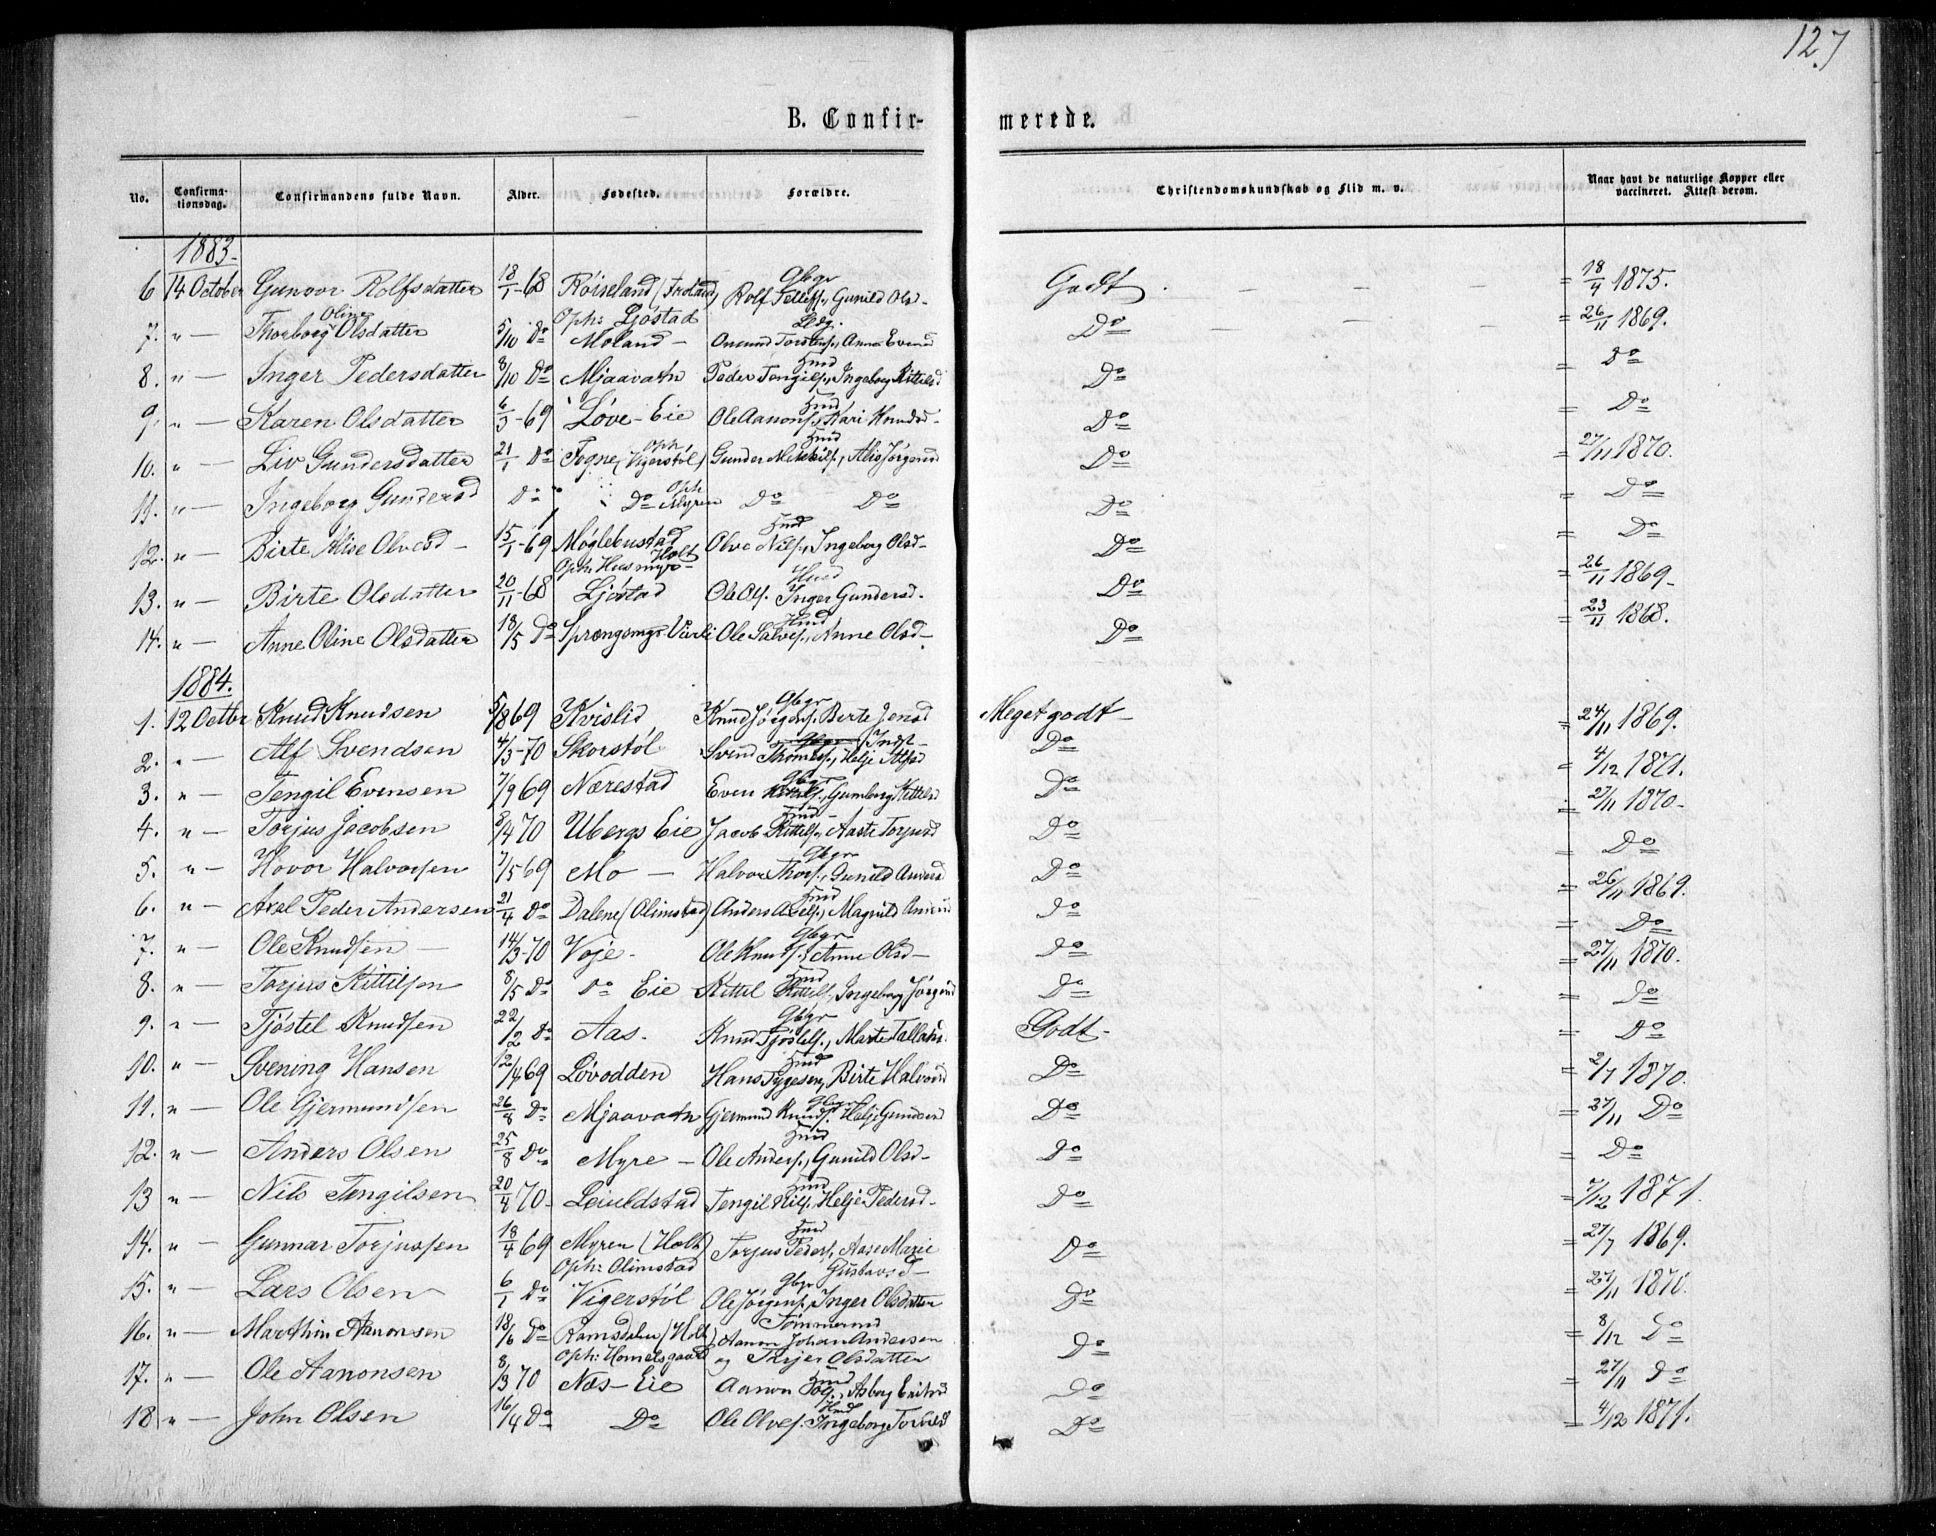 127
B. Confir- merede.
No. Confirmationsdag. Confirmandens fulde Navn. Alder. Fødested. Forældre. Christendomskundskab og Flid m. v. Naar havt de naturlige Kopper eller vaccineret. Attest derom.
1883.
6 14 October Gunvor Rolfsdatter 18/1-68 Røiseland (Froland) Gbgr Rolf Tellefs., Gunild Olsd- Godt. = 18/4 1875.
7. " — Thorborg Oline Olsdatter 5/10 Do Oph: Ljøstad Moland - Do = 26/11 1869.
8. " — Inger Pedersdatter 8/10 Do Mjaavatn Hmd Peder Tengilss., Ingeborg Kittilsd Do = Do
9. " — Karen Olsdatter 6/3-69 Løve-Eie Hmd Ole Aanons., Kari Knudsd- Do = Do
10. " — Liv Gundersdatter 21/1 Do Togne (Oph Vigerstøl) Hmd Gunder Mikkils., Alis Jørgensd Do = 27/11 1870.
11. " — Ingeborg Gundersd Do " Do Oph Myren Do Do Do = Do
12. " — Birte Alise Olvesd - 15/1-69 Møglebustad Holt Hmd Olve Nils., Ingeborg Olsd- Do = Do
13. " — Birte Olsdatter 20/11-68 Oph: Husmyr- Ljøstad Hmd Ole Ols. Inger Gundersd. Do = 26/11 1869-
14. " — Anne Oline Olsdatter 18/5 Do Hmd Ole Salves., Anne Olsd- Do = 23/11 1868.
1884.
1. 12 Octbr Knud Knudsen 5/8 69 Kvislid Gbgr Knud Jørgens., Birte Jensd Meget godt - = 24/11 1869.
2. " Alf Svendsen 4/3-70 Skorstøl Gbgr Indst- Svend Thomess., Helje Alfsd Do = 4/12 1871.
3. " — Tengil Evensen 7/9 69 Nærestad Gbgr Even Kittils., Gumborg Kittilsd Do = 27/11 1870-
4. " — Torjus Jacobsen 8/4 70 Ubergs Eie Hmd Jacob Kittels., Aaste Torjusd Do = Do
5. " — Hovor Halvorsen 7/5 69 Mo — Gbgr Halvor Thors., Gunild Andersd Do = 26/11 1869.
6. " — Axel Peder Andersen 21/4 Do Dalene (Olimstad) Hmd Anders Axels., Magnild Do = Do
7. " — Ole Knudsen — 14/3-70 Voje- Gbgr Ole Knuds., Anne Olsd- Do = 27/11 1870.
8. " — Torjus Kittilsen 8/5 Do Do Eie Hmd Kittel Kittils., Ingeborg Jørgensd Do = Do
9. " — Tjøstel Knudsen 22/2 Do Aas. Gbgr Knud Tjøstels., Marte Tallaks. Godt- = Do
10. " — Svening Hansen 12/4 69 Løvodden Hmd Hans Tygesen, Birte Halvorsd Do = 2/7 1870.
11. " — Ole Gjermundsen 26/8 Do Mjaavatn Gbgr Gjermund Knuds., Helje Gundersd Do = 27/11 Do
12. " — Anders Olsen 25/8 Do Myre - Hmd Ole Anders., Gunild Olsd- Do = Do
13 " — Nils Tengilsen 20/4 70- Leiuldstad Hmd Tengil Nils., Helje Pedersd- Do = 7/12 1871.
14. " — Gunnar Torjussen 18/4 69 Myren (Holt) Oph: Olimstad Hmd Torjus Peders., Aase Marie Gustavsd- Do = 27/7 1869.
15. " — Lars Olsen 6/1 Do Vigerstøl Gbgr Ole Jørgens., Inger Olsdatter Do = 27/11 1870.
16. " — Marthin Aanonsen 18/6 Do Ramsdalen (Holt) Oph: Homelsgaard Tømmermd Aanon Johan Andersen og Terjer Olsdatter Do = 8/12 Do
17. " — Ole Aanonsen 8/3 70 Næs-Eie Hmd Aanon Asborg Do = 27/11 Do
18 " — John Olsen 16/4 Do Do Hmd Ole Olves., Ingeborg Do = 4/12 1871.